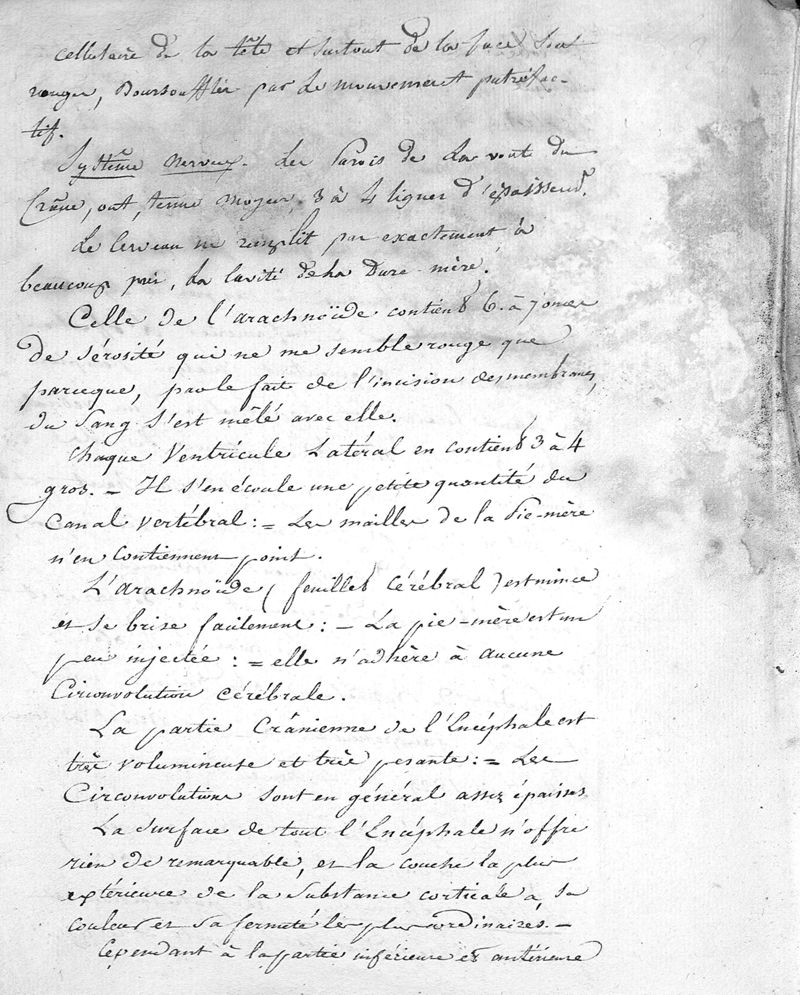 cellulaire de la tête et surtout de la face sont
rouges, Boursoufflés par le mouvement putréfac-
tif.
Système nerveux. Les Parois de la voute du
Crâne, ont, terme moyen, 3 à 4 lignes d'épaisseur.
Le Cerveau ne remplit pas exactement à
beaucoup près, la Cavité de la Dure-mère.
Celle de l'arachnoïde contient 6. à 7 onces
de Sérosité qui ne me semble rouge que
parceque, par le fait de l'incision des membranes,
du Sang s'est mêlé avec elle.
Chaque Ventricule Latéral en contient 3 à 4
gros. = Il s'en écoule une petite quantité du
Canal vertébral : = Les mailles de la Pie-mère
n'en contiennent point.
L'arachnoïde (feuillet Cérébral) est mince
et se brise facilement : - La pie-mère est un
peu injectée : = elle n'adhère à aucune
Circonvolution cérébrale.
La partie Crânienne de l'Encéphale est
très volumineuse et très pesante : = Les
Circonvolutions sont en général assez épaisses
La Surface de tout l'Encéphale n'offre
rien de remarquable, et la couche la plus
extérieure de la Substance corticale a, sa
couleur et sa fermeté les plus ordinaires. -
Cependant à la partie inférieure et antérieure